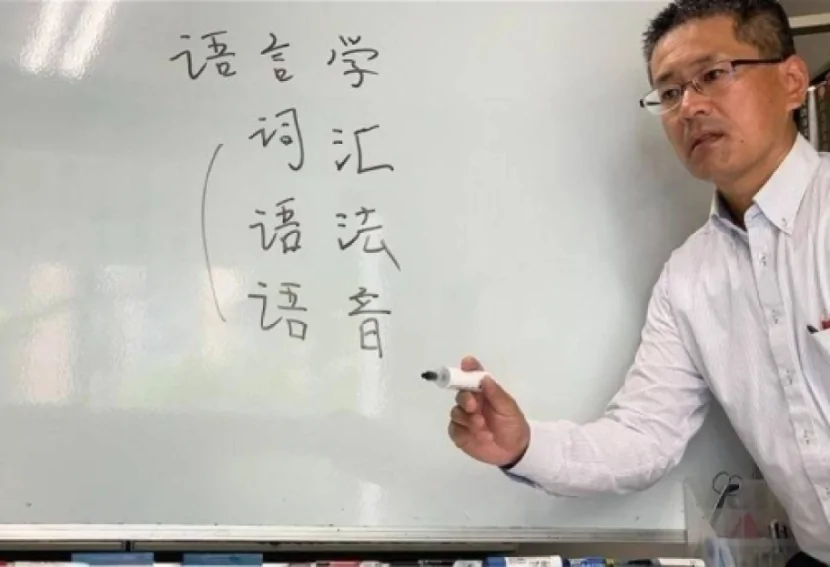 语言学
词汇
语法
语音